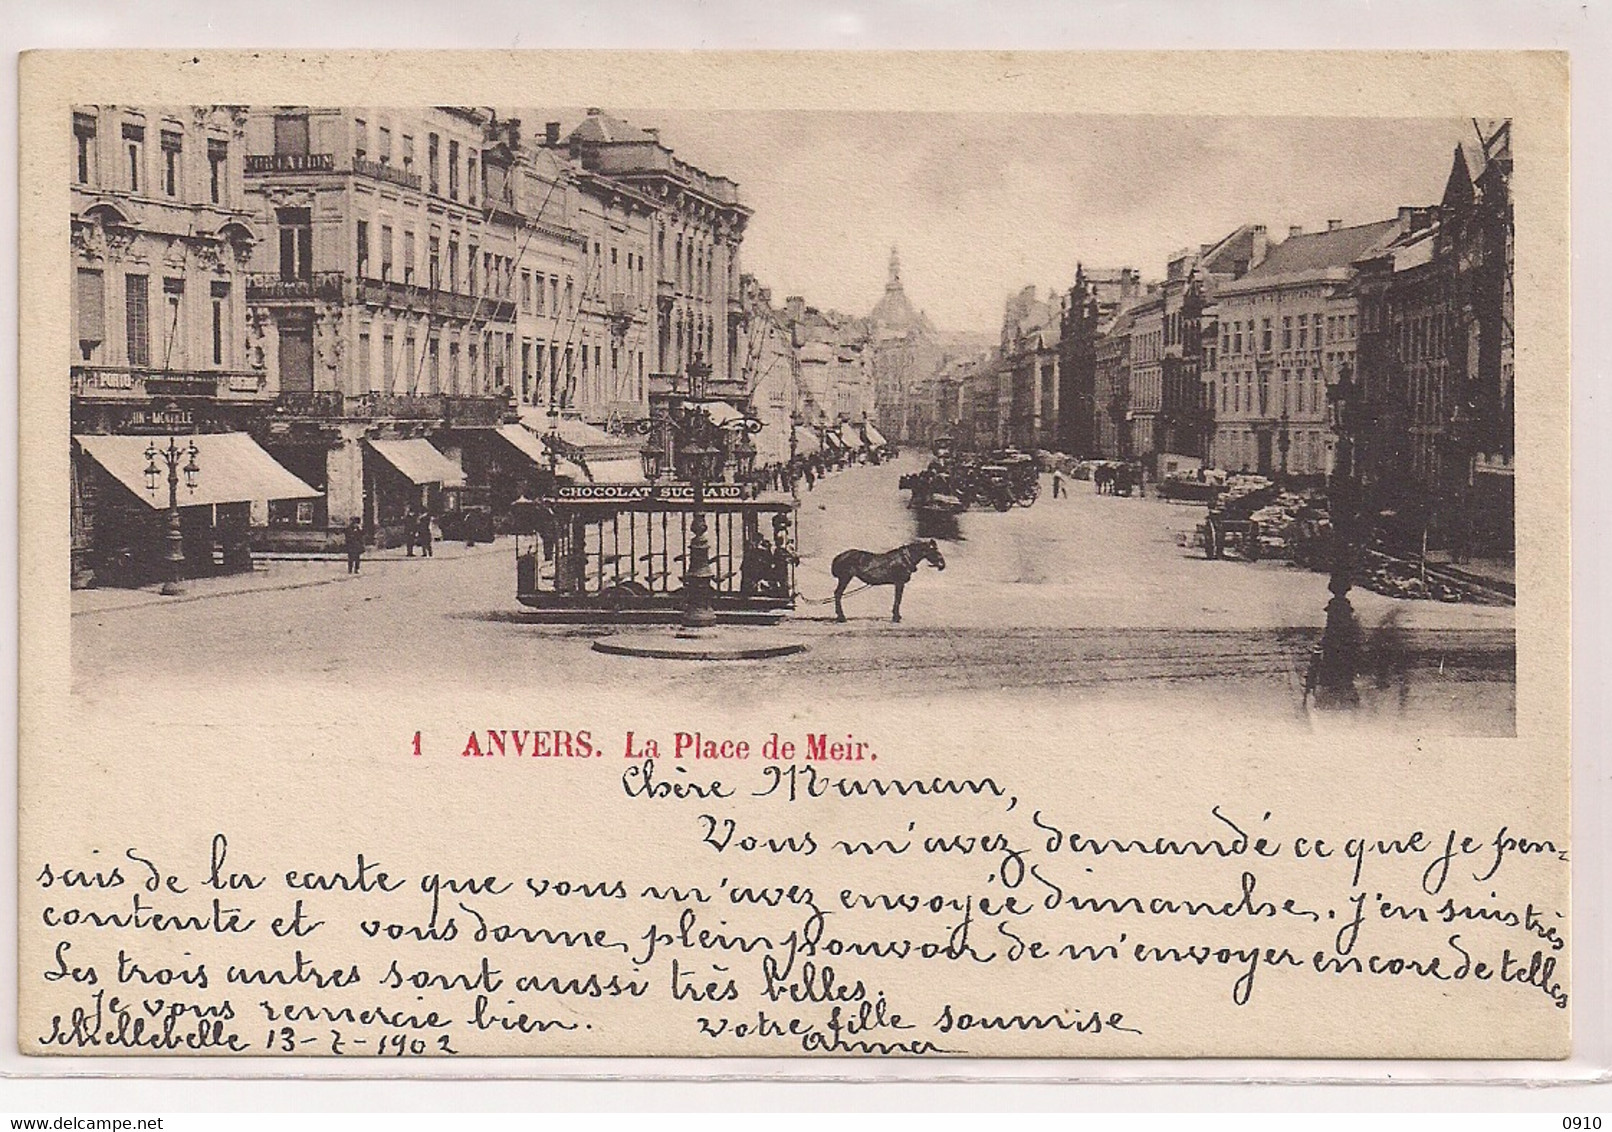 PORTO
CHOCOLAT SUCHARD
1 ANVERS. La Place de Meir.
Chère Maman,
Vous m'avez demandé ce que je pen-
sais de la carte que vous m'avez envoyée dimanche. J'en suis très
contente et vous donne plein pouvoir de m'envoyer encore de telles
Les trois autres sont aussi très belles.
Je vous remercie bien. Votre fille soumise
Schellebelle 13-7-1902 Anna
delcampe.net
0910